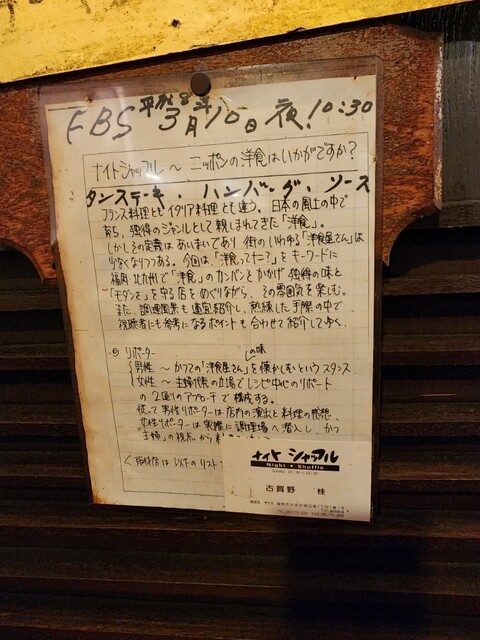 平成8年
FBS 3月10日 夜!10:30
ナイトシャッフル ～ ニッポンの洋食はいかがですか?
タンステーキ、ハンバーグ、ソース
フランス料理とも イタリア料理とも違う、日本の風土の中で
育ち、独得のジャンルとして親しまれてきた「洋食」。
しかしその定義はあいまいであり 街のいわゆる「洋食屋さん」は
少なくなりつつある。今回は、「洋食って十二?」をキーワードに
福岡・北九州で「洋食」のカンバンをかかげ 独得の味と
「モダンさ」を守る店をめぐりながら、その雰囲気を楽しむ。
また、調理風景も適宜紹介し、熟練した手際の中で、
視聴者にも参考になるポイントも合わせて紹介してゆく。
リポーター
の味
男性 ～ かつての「洋食屋さん」を懐かしむというスタンス
女性 ～ 主婦代表の立場でレシピ中心のリポート
の2通りのアプローチで構成する。
従って 男性リポーターは店内の演出と料理の感想、
女性リポーターは実際に調理場へ潜入し、かつ
「主婦」の視点から
取材店は以下のリスト
ナイト シャッフル
Night • Shuffle
古賀野 桂